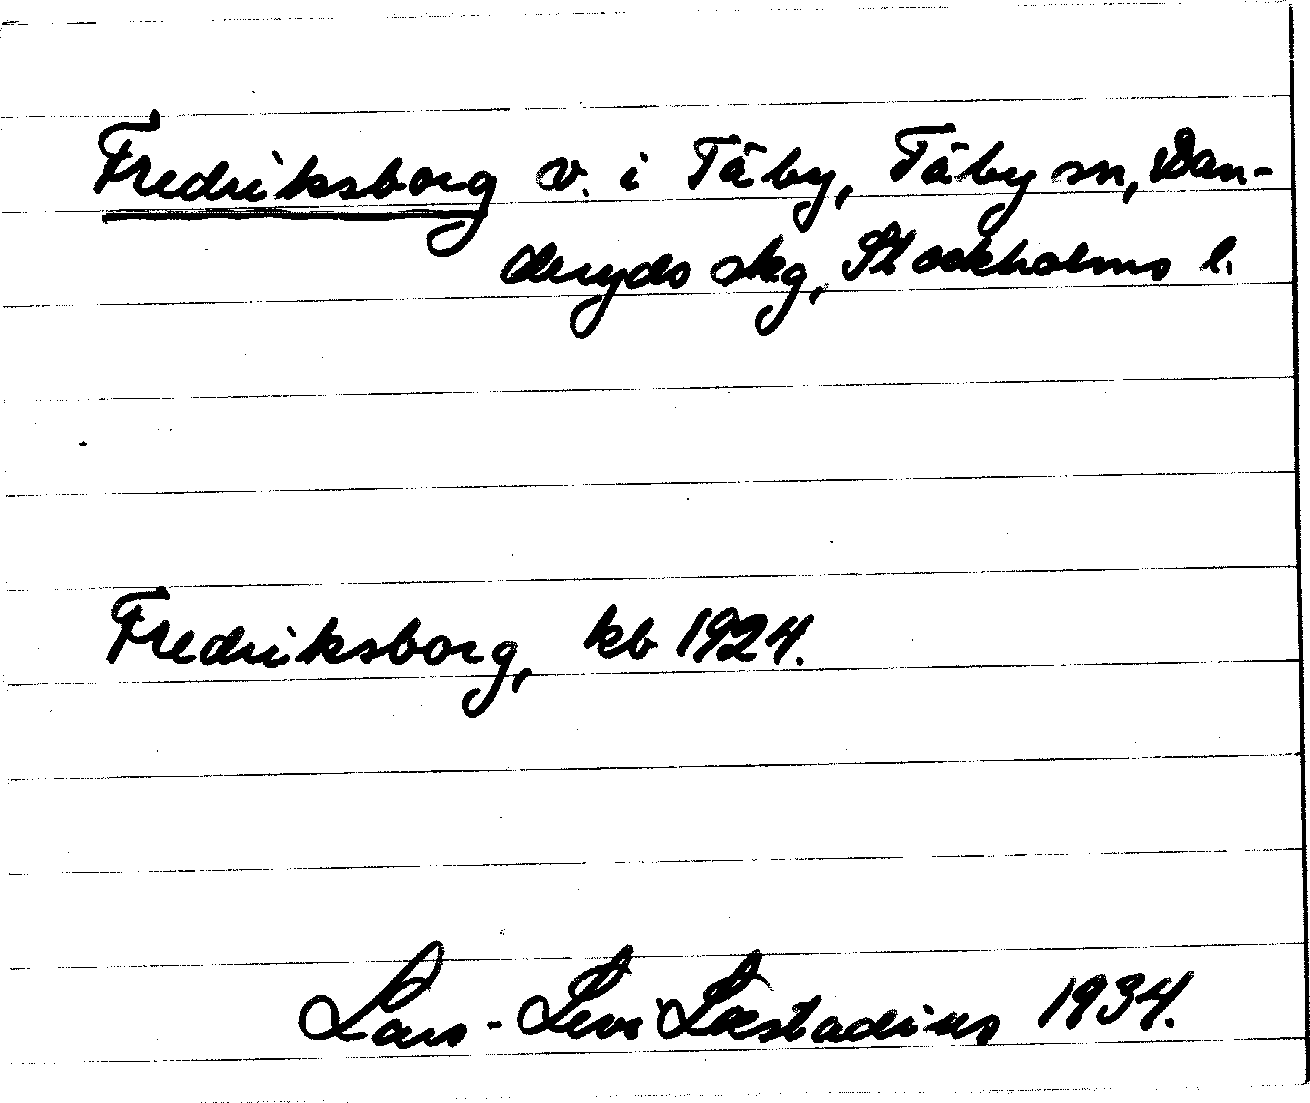 Fredriksborg v. i Täby, Täby sn, Dan-
deryds skg, Stockholms l.
Fredriksborg, kb 1924.
Lars-Levi Læstadius 1934.